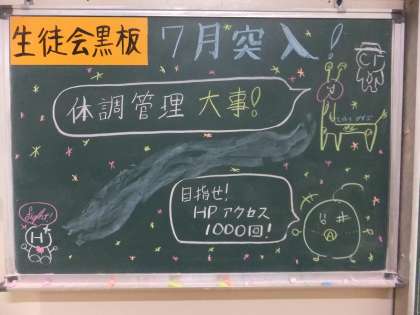 生徒会黒板
7月突入!
体調管理 大事!
目指せ!
HP アクセス
1000回!
fight!
H
A